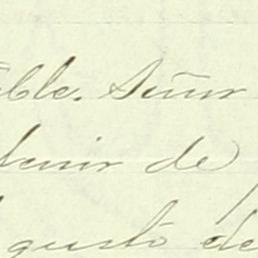 ble. Señor
tenir de
gusto de